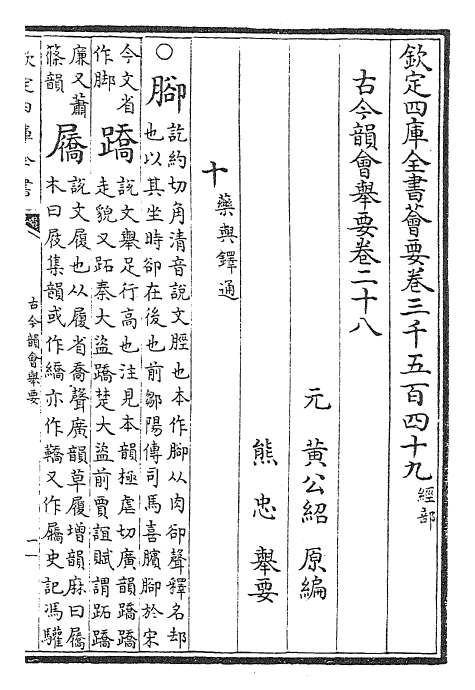 欽定四庫全書薈要卷三千五百四十九 經部
古今韻會舉要卷二十八
元 黃公紹 原編
熊忠 舉要
十 藥與鐸通
○腳 訖約切角清音說文脛也本作腳从肉卻聲釋名却
也以其坐時卻在後也前鄒陽傳司馬喜臏腳於宋
今文省
作脚 蹻 說文舉足行高也注見本韻極虐切廣韻蹻蹻
走貌又跖秦大盜蹻楚大盜前賈誼賦謂跖蹻
廉又蕭
篠韻 屩 說文履也从履省喬聲廣韻草履增韻麻曰屩
木曰屐集韻或作繑亦作鞽又作屩史記馮驩
欽定四庫全書 古今韻會舉要 一